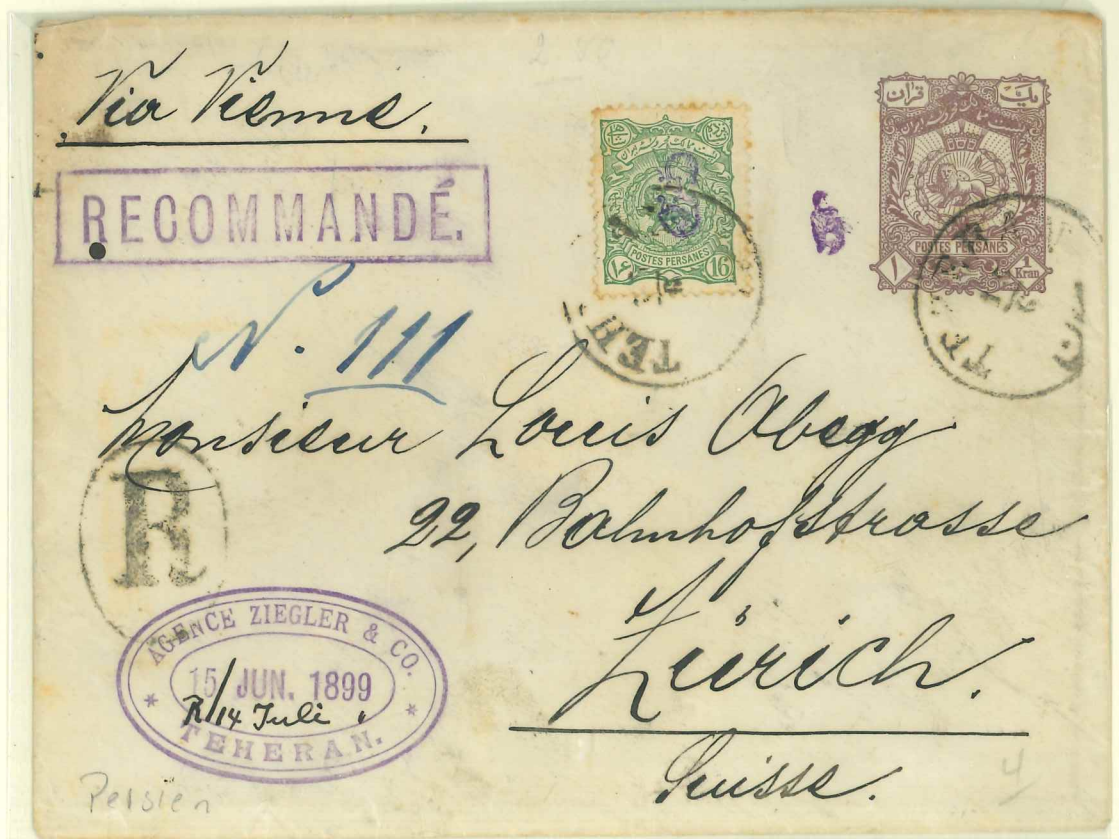 Via Vienne.
RECOMMANDÉ.
N. 111
یک قران
POSTES PERSANES
۱۶ 16
POSTES PERSANES
۱ 1 Kran
TEH
Monsieur Louis Abegg
22, Bahnhofstrasse
Zürich.
Suisse.
R
AGENCE ZIEGLER & CO.
15/ JUN. 1899
R/14 Juli "
TEHERAN.
Persien
4